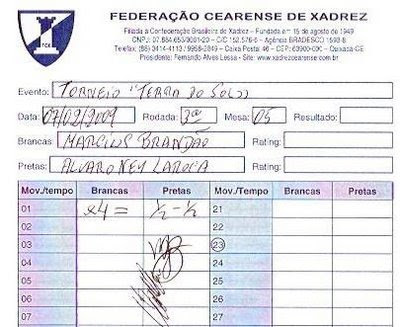 FEDERAÇÃO CEARENSE DE XADREZ
Filiada à Confederação Brasileira de Xadrez – Fundada em 15 de agosto de 1949
CNPJ: 07.884.653/0001-20 – C/C 152.576-6 – Agência BRADESCO 1593-8
Telefax: (88) 3414-4113 / 9958-2849 – Caixa Postal: 46 – CEP: 63900-000 – Quixadá-CE
Presidente: Fernando Alves Lessa – Site: www.xadrezcearense.com.br
Evento: TORNEIO "TERRA DO SOL"
Data: 07/02/2009 Rodada: 3ª Mesa: 05 Resultado:
Brancas: MARCIUS BRANDÃO Rating:
Pretas: ALVARO NEY LAROCA Rating:
Mov./tempo Brancas Pretas Mov./tempo Brancas Pretas
01 e4 = ½ - ½ 21
02 22
03 23
04 24
05 25
06 26
07 27